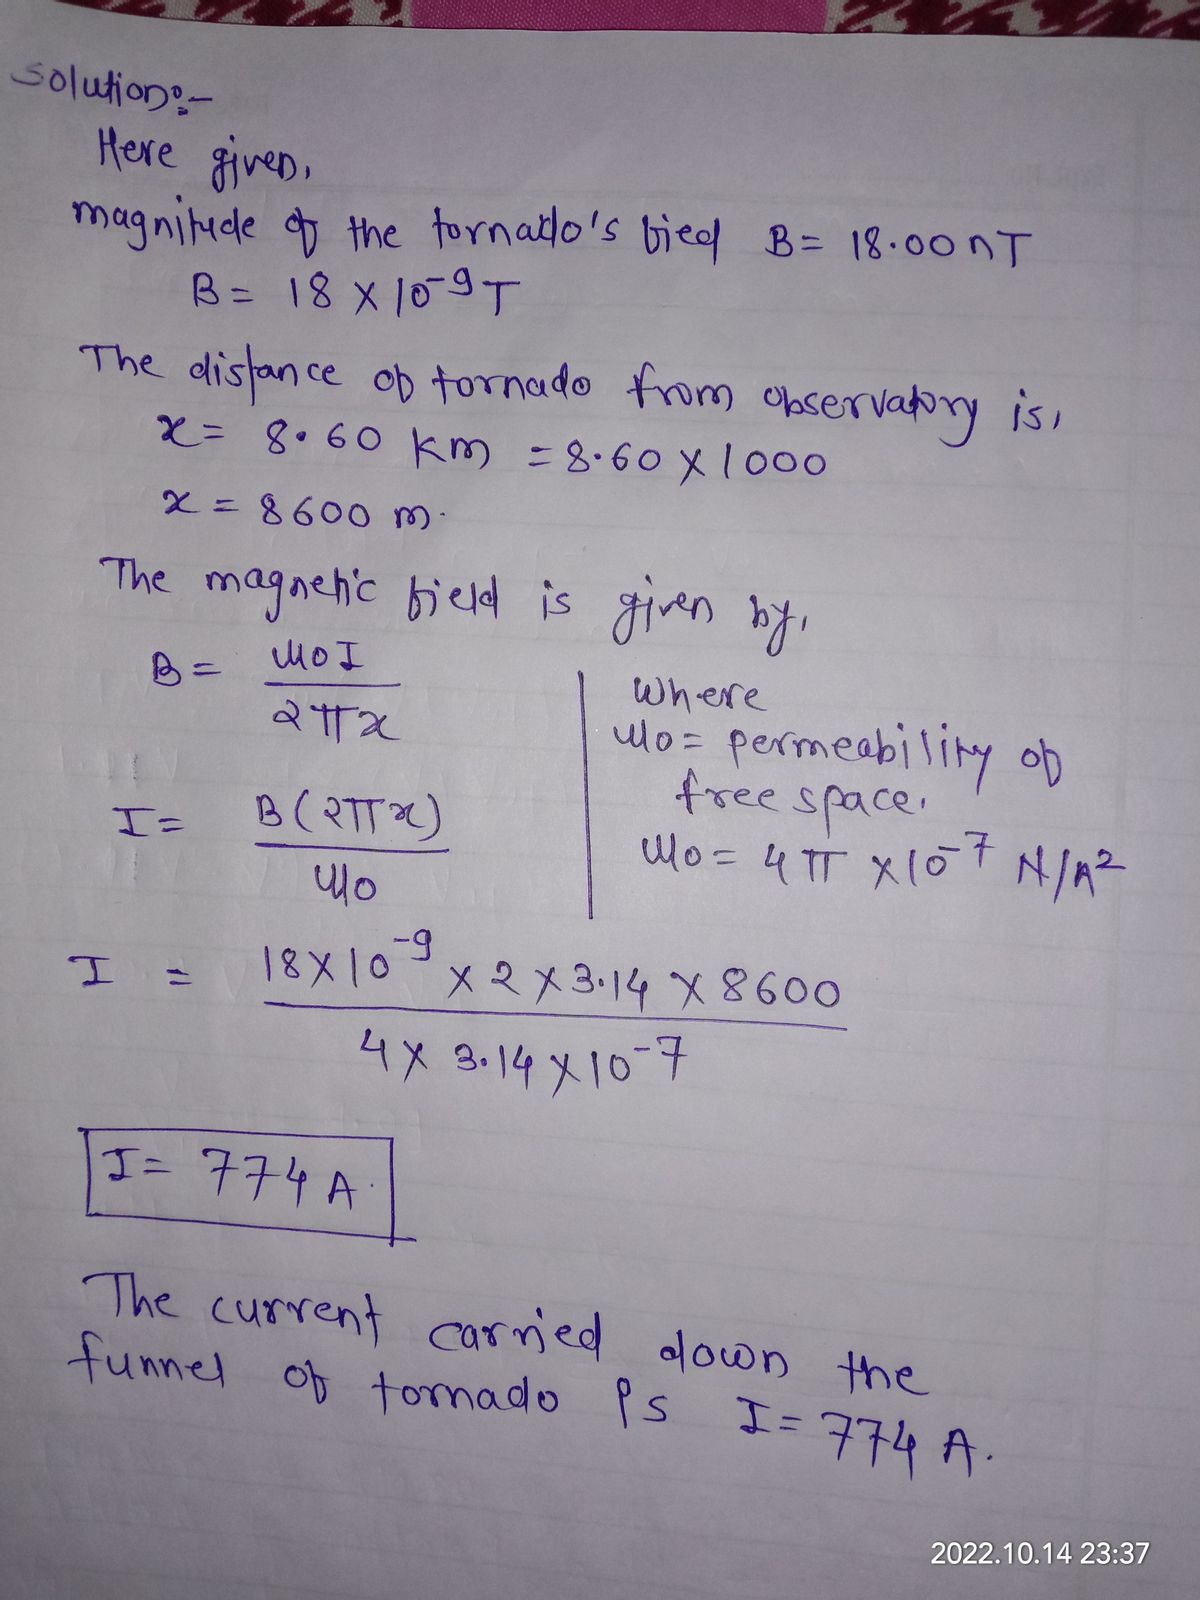 Solution:-
Here given,
magnitude of the tornado's fied B = 18.00 nT
B = 18 × 10⁻⁹ T
The distance of tornado from observatory is,
x = 8.60 km = 8.60 × 1000
x = 8600 m.
The magnetic field is given by,
B = μ0I / 2πx
I = B(2πx) / μ0
Where
μ0 = permeability of
free space.
μ0 = 4π × 10⁻⁷ N/A²
I = 18×10⁻⁹ × 2 × 3.14 × 8600
4 × 3.14 × 10⁻⁷
I = 774 A.
The current carried down the
funnel of tornado is I = 774 A.
2022.10.14 23:37